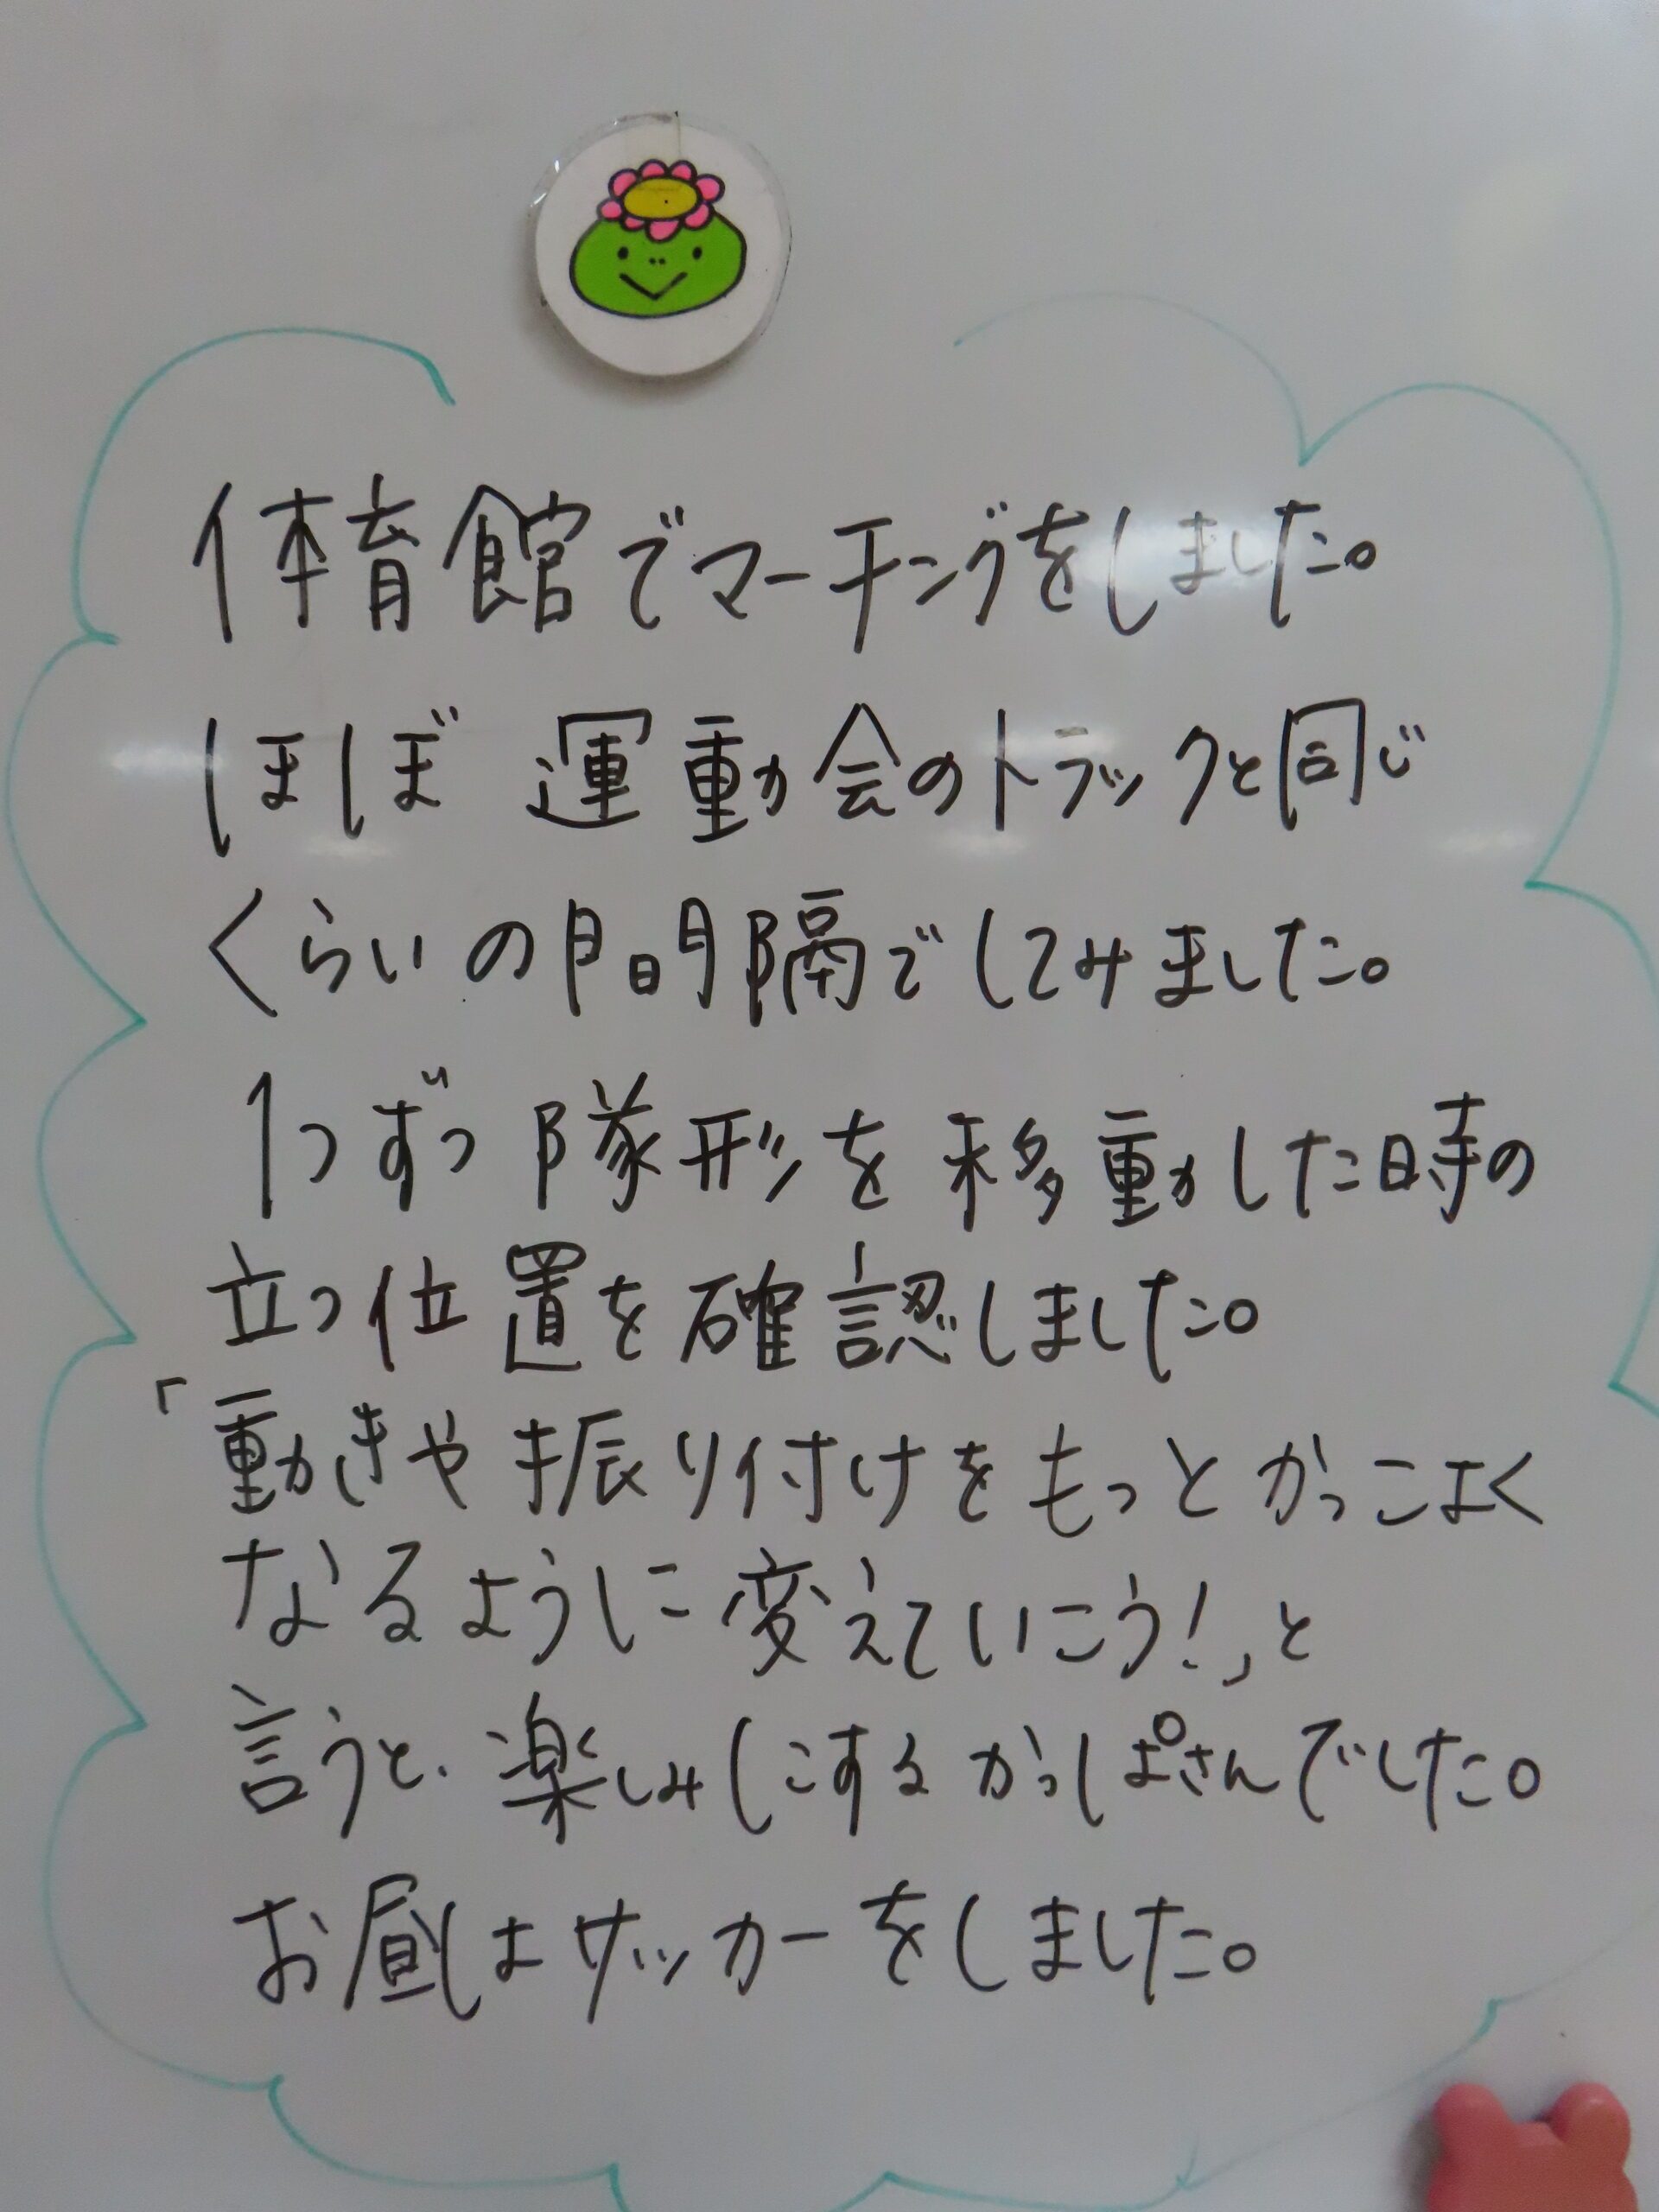 体育館でマーチングをしました。
ほぼ 運動会のトラックと同じ
くらいの間隔でしてみました。
1つずつ隊形を移動した時の
立つ位置を確認しました。
「動きや振り付けをもっとかっこよく
なるように変えていこう!」と
言うと、楽しみにするかっぱさんでした。
お昼はサッカーをしました。